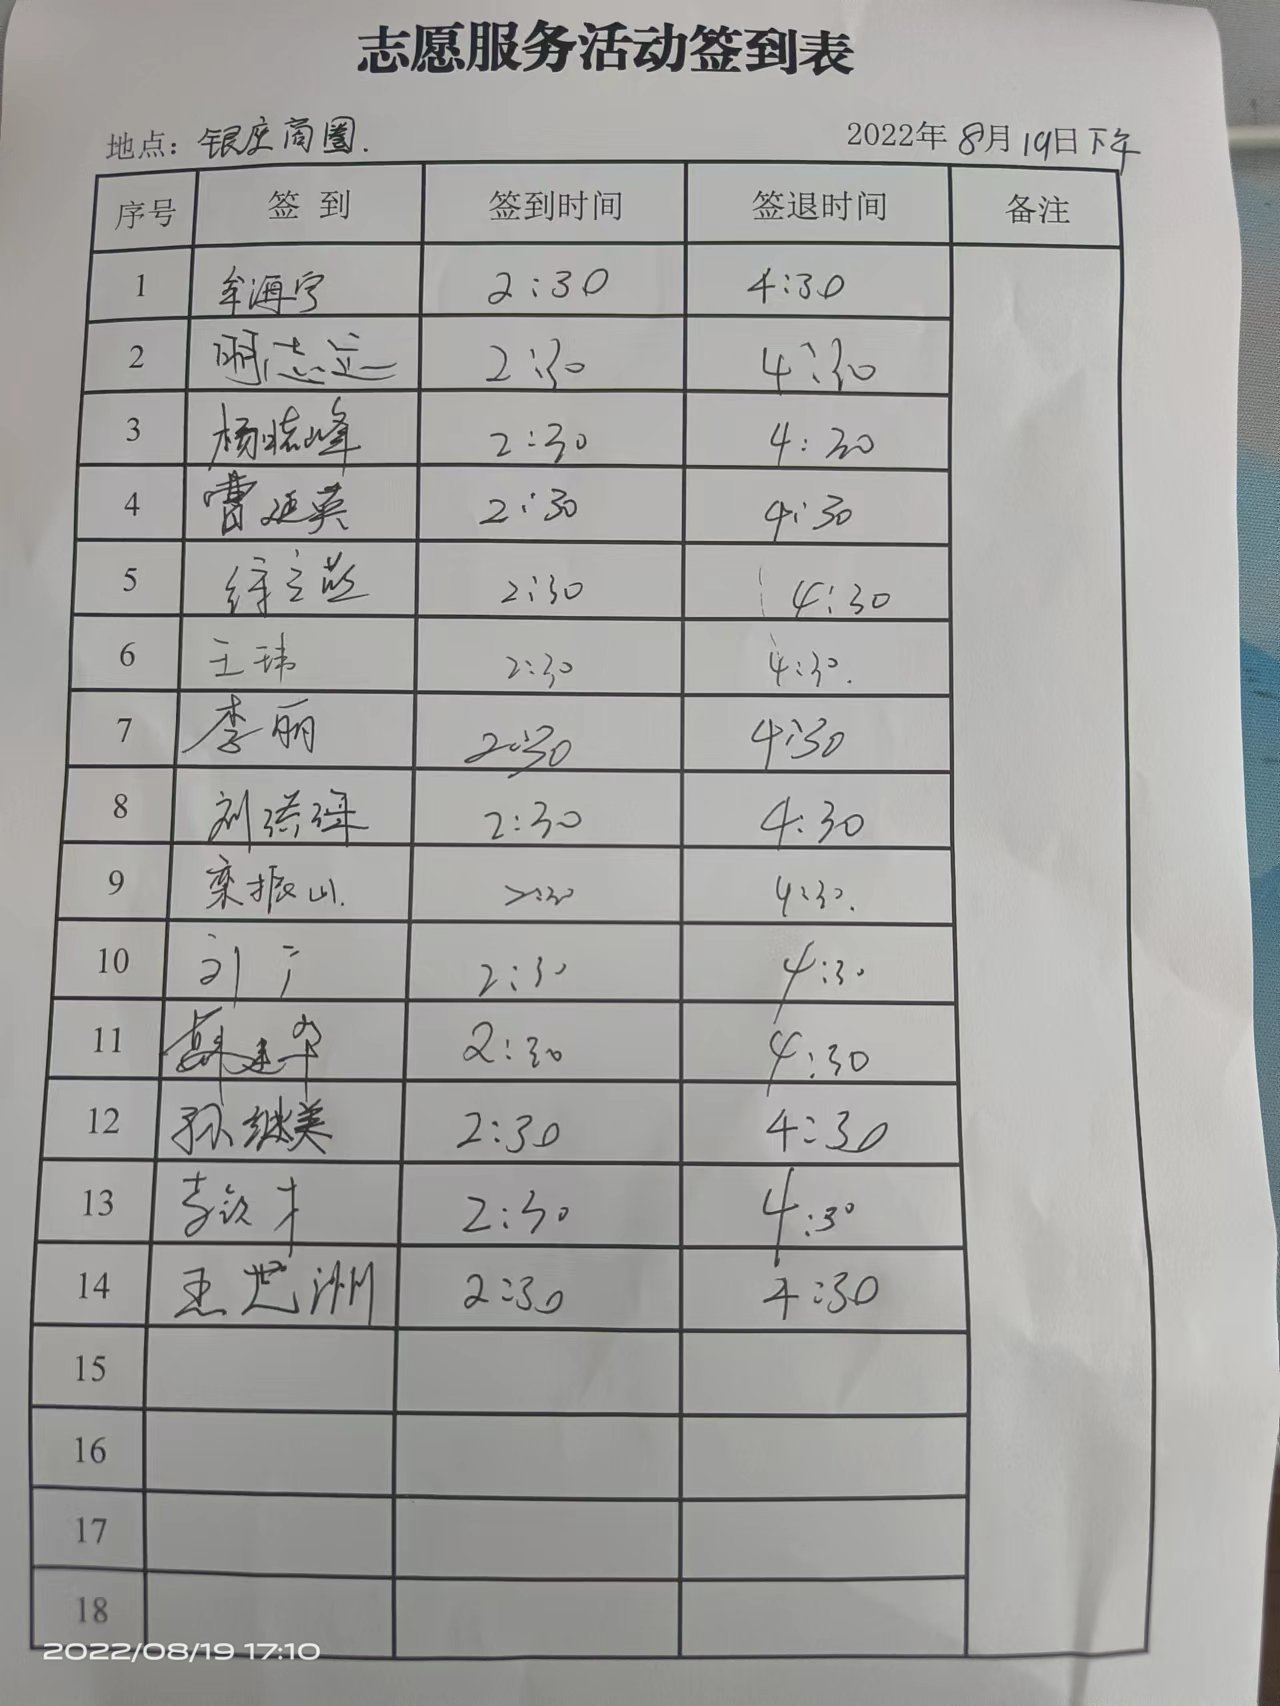 志愿服务活动签到表
地点：银座商圈. 2022年8月19日下午
序号 签到 签到时间 签退时间 备注
1 牟海宁 2:30 4:30
2 志远 2:30 4:30
3 杨晓峰 2:30 4:30
4 曹延英 2:30 4:30
5 徐立燕 2:30 4:30
6 王玮 2:30 4:30.
7 李丽 2:30 4:30
8 刘 2:30 4:30
9 栾振山. 2:30 4:30.
10 刘广 2:30 4:30
11 建华 2:30 4:30
12 孙继美 2:30 4:30
13 李钦才 2:30 4:30
14 王世洲 2:30 4:30
15
16
17
18
2022/08/19 17:10